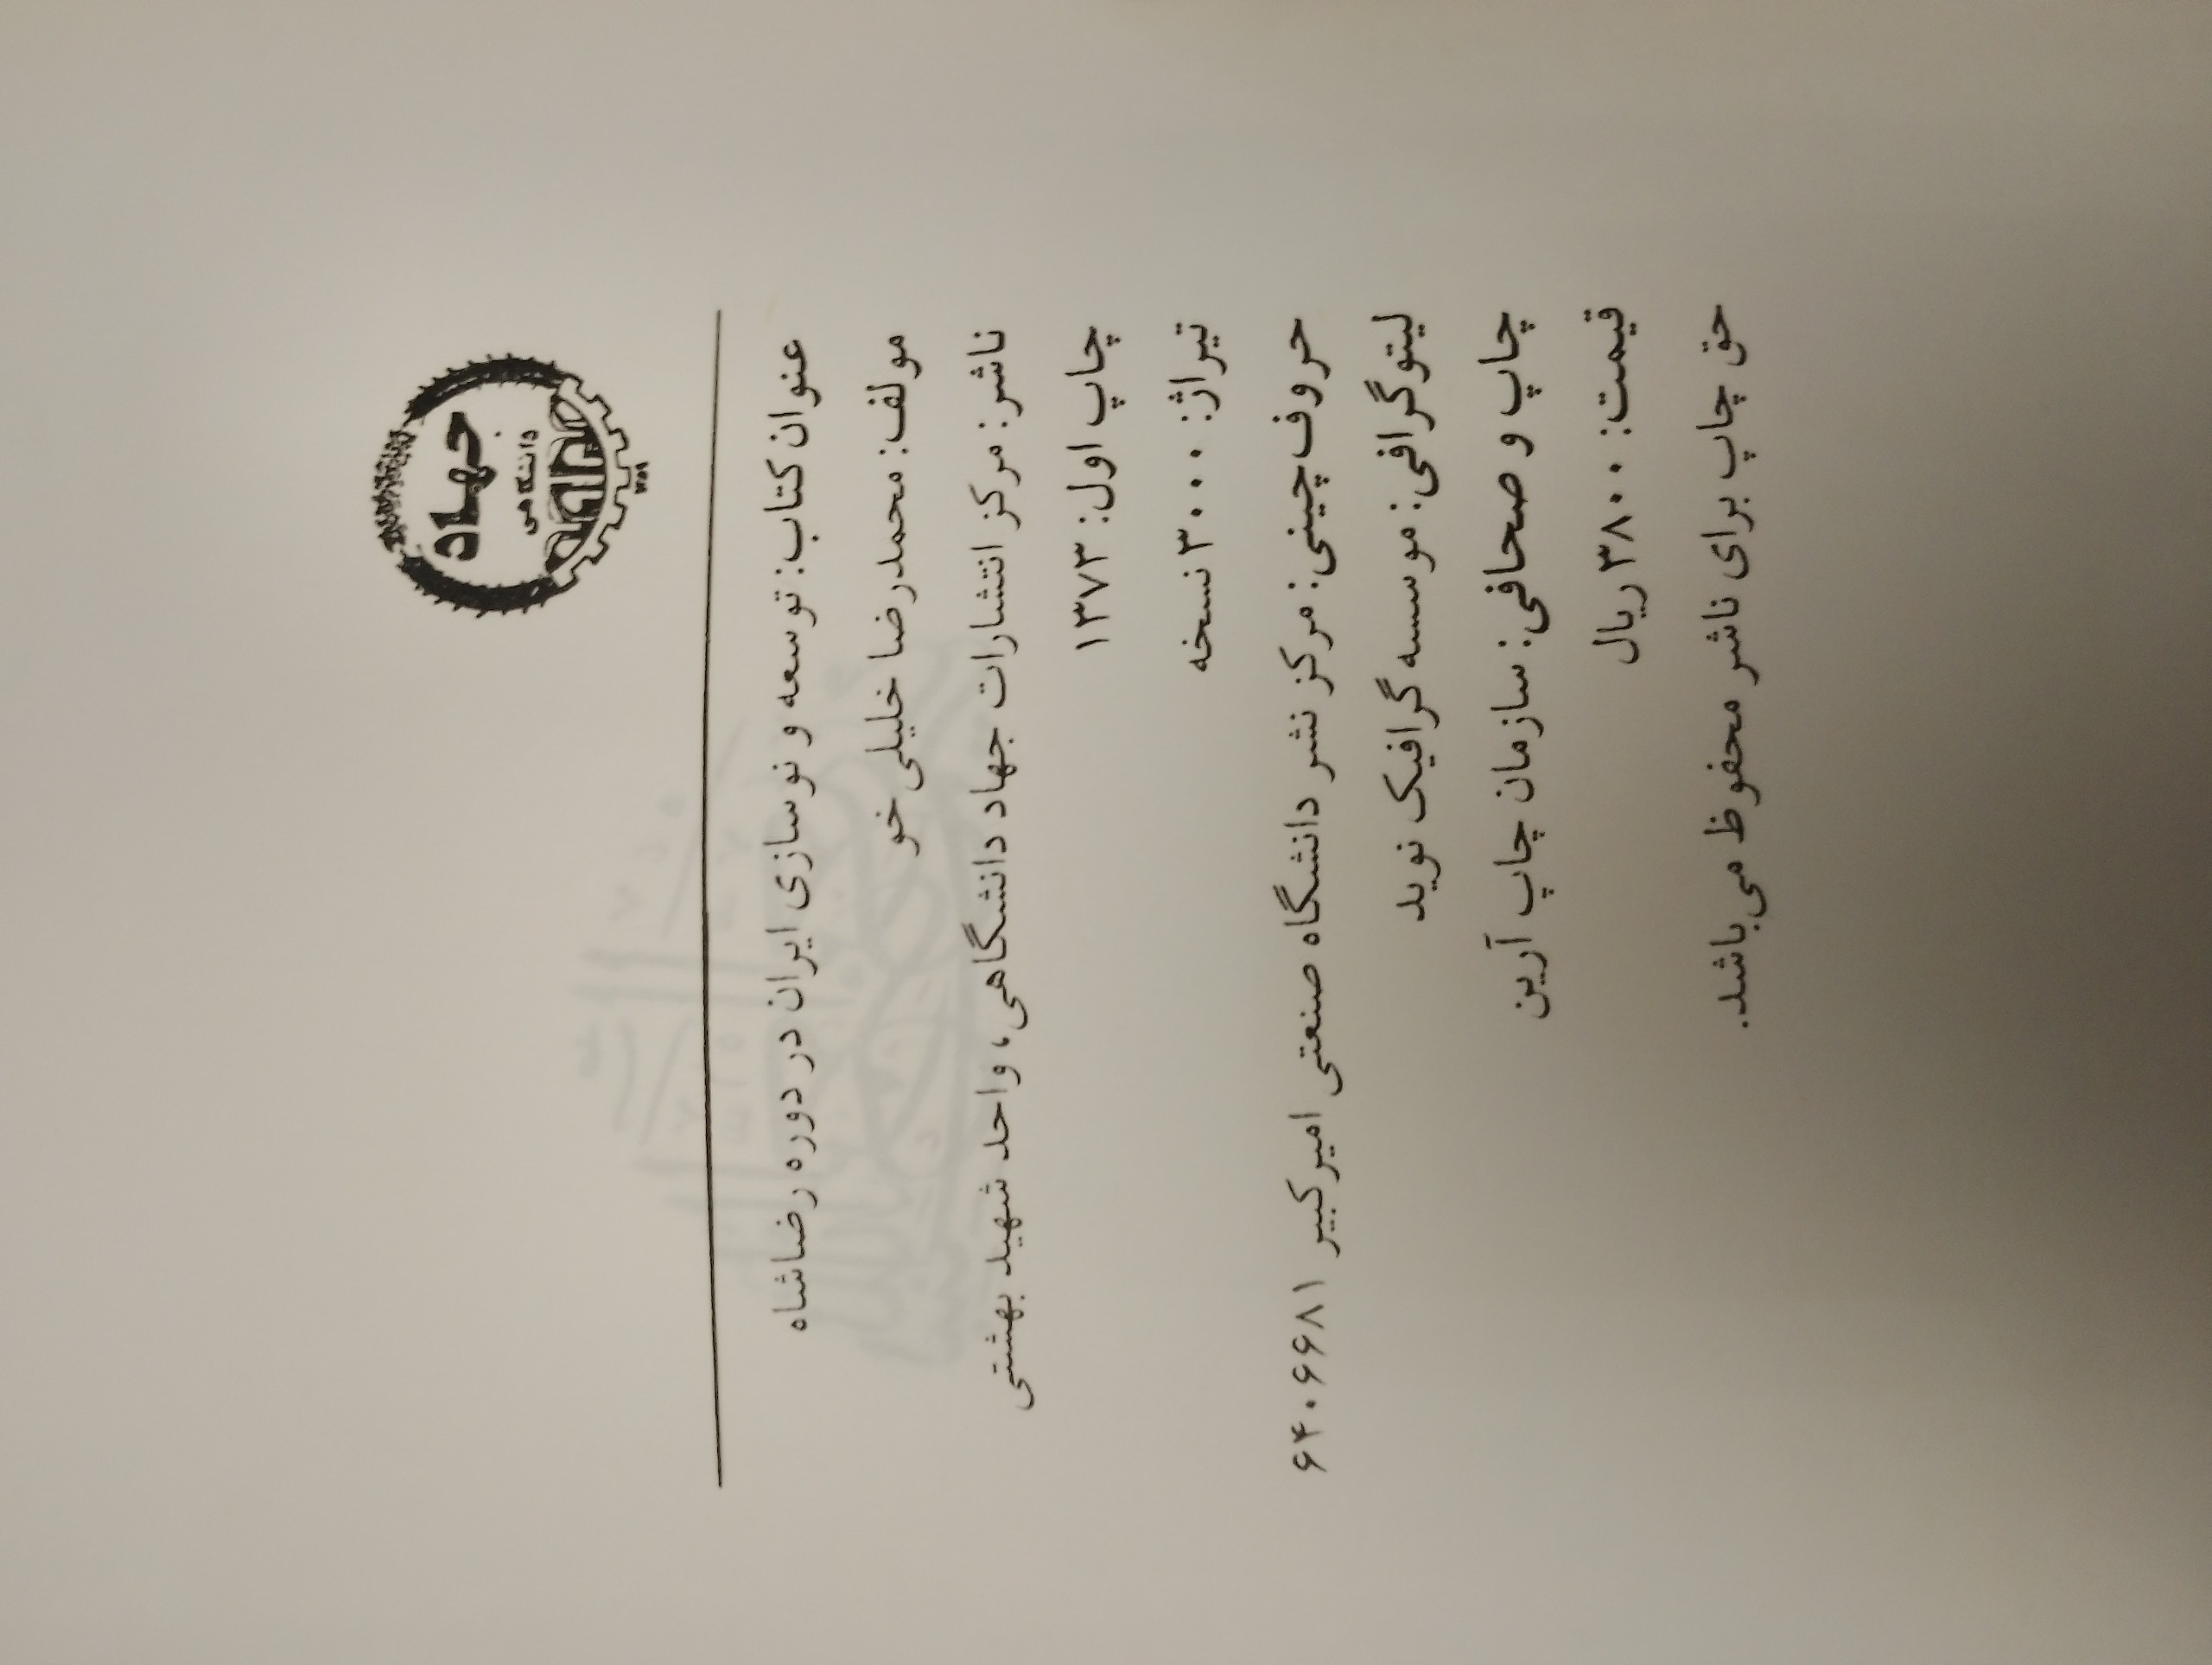 جهاد
دانشگاهی
عنوان کتاب: توسعه و نوسازی ایران در دوره رضاشاه
مولف: محمدرضا خلیلی خو
ناشر: مرکز انتشارات جهاد دانشگاهی، واحد شهید بهشتی
چاپ اول: ۱۳۷۳
تیراژ: ۳۰۰۰ نسخه
حروف‌چینی: مرکز نشر دانشگاه صنعتی امیرکبیر ۶۴۰۶۶۸۱
لیتوگرافی: موسسه گرافیک نوید
چاپ و صحافی: سازمان چاپ آرین
قیمت: ۳۸۰۰ ریال
حق چاپ برای ناشر محفوظ می‌باشد.